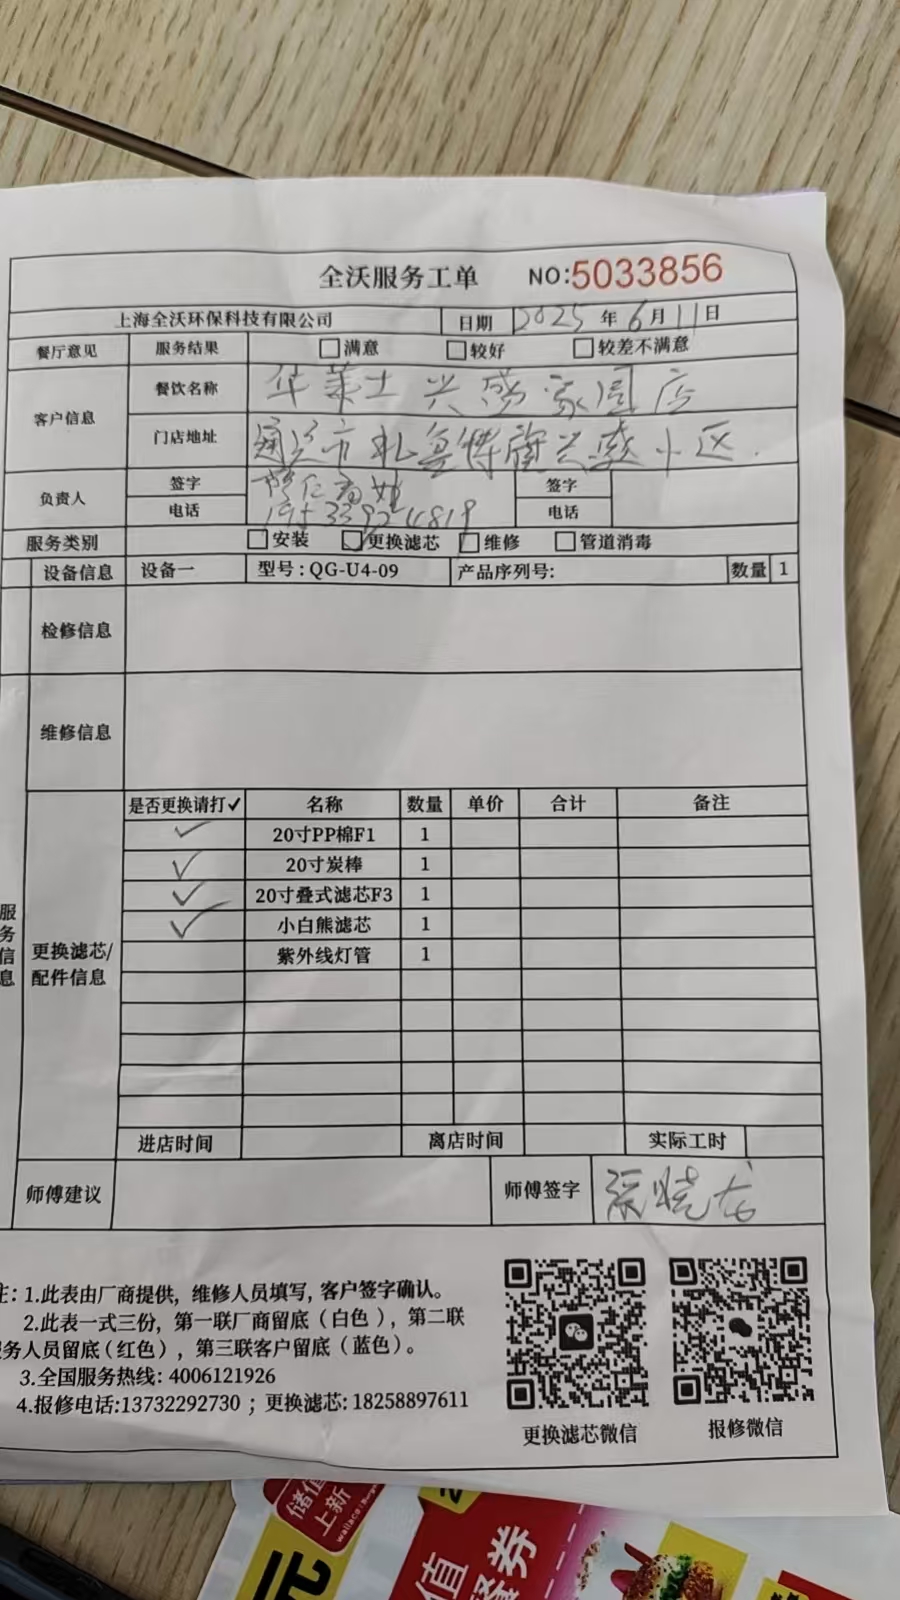 全沃服务工单 NO:5033856
上海全沃环保科技有限公司 日期 2025年6月11日
餐厅意见 服务结果 满意 较好 较差不满意
客户信息 餐饮名称 华莱士兴盛家园店
门店地址 通辽市扎鲁特旗兴盛小区.
负责人 签字 签字
电话 电话
服务类别 安装 更换滤芯 维修 管道消毒
设备信息 设备一 型号:QG-U4-09 产品序列号: 数量 1
检修信息
维修信息
服务信息
更换滤芯/配件信息
是否更换请打✓ 名称 数量 单价 合计 备注
✓ 20寸PP棉F1 1
✓ 20寸炭棒 1
✓ 20寸叠式滤芯F3 1
✓ 小白熊滤芯 1
紫外线灯管 1
进店时间 离店时间 实际工时
师傅建议 师傅签字 张晓龙
注:1.此表由厂商提供,维修人员填写,客户签字确认。
2.此表一式三份,第一联厂商留底(白色),第二联
务人员留底(红色),第三联客户留底(蓝色)。
3.全国服务热线:4006121926
4.报修电话:13732292730;更换滤芯:18258897611
更换滤芯微信 报修微信
储值
上新
wallace
元
值
券